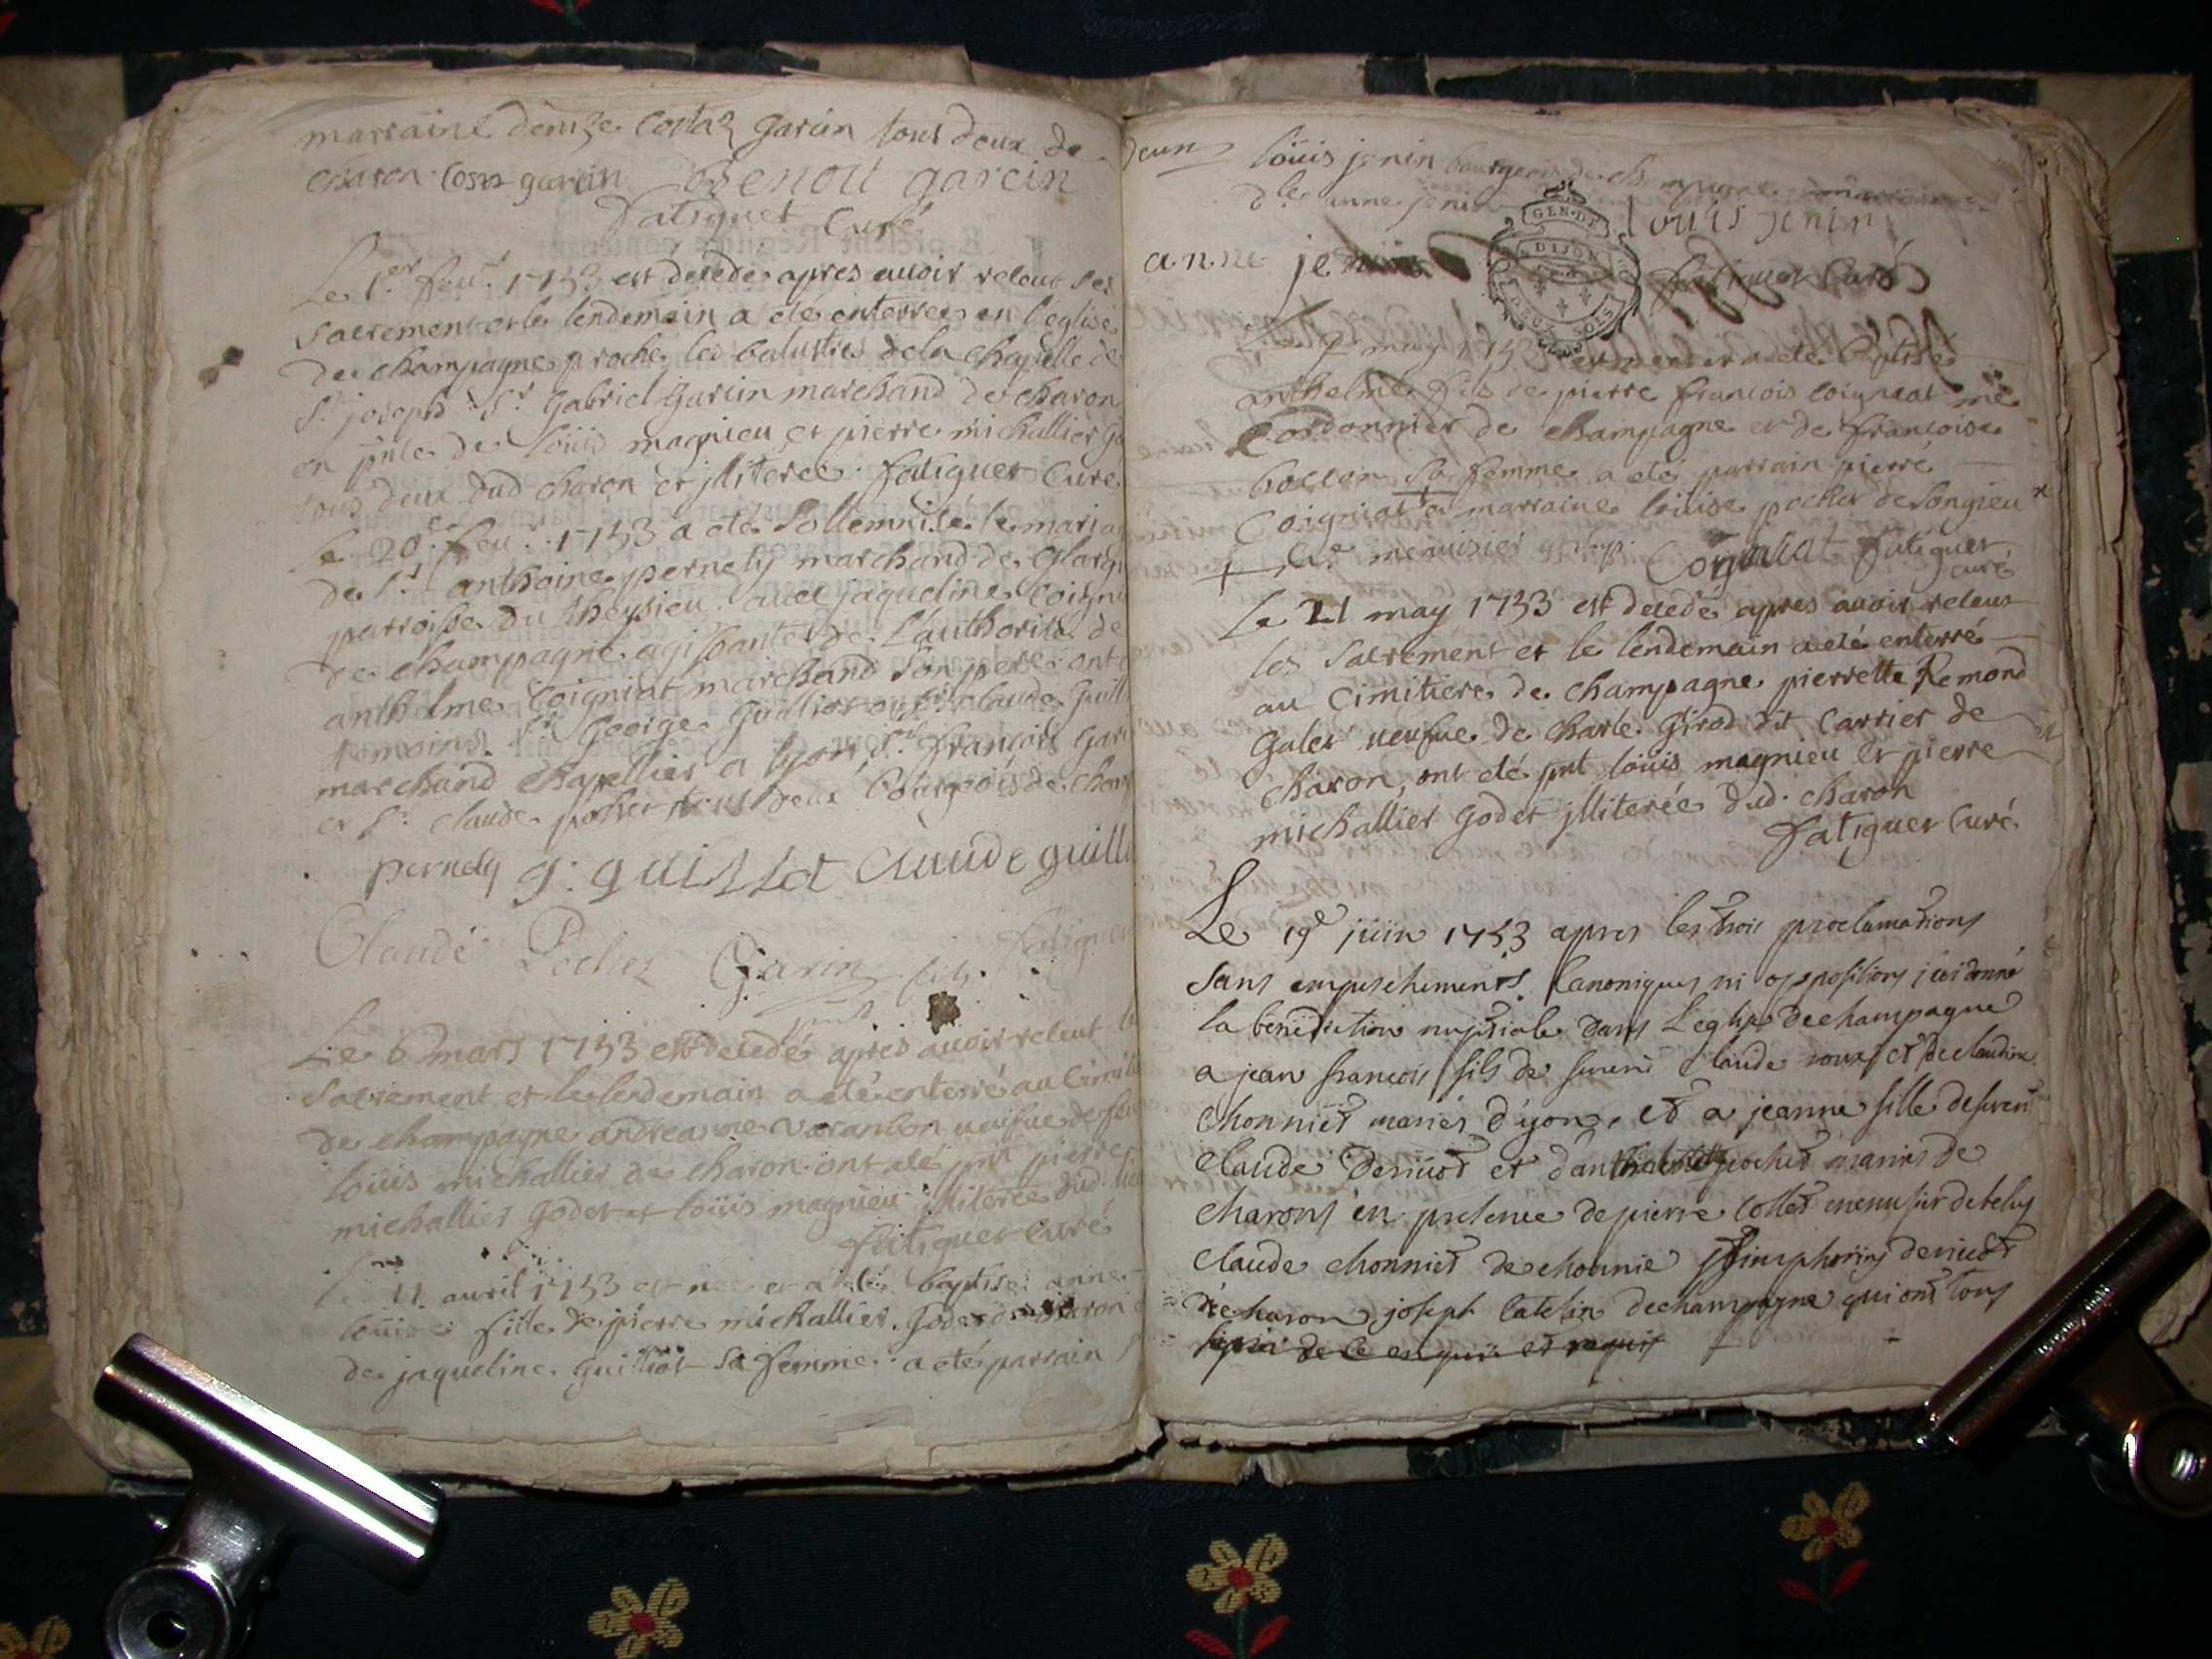 marraine denize Costaz Garin tous deux de
charon Cosm garcin benoit garcin
fatiguet Curé
Le 1.er feu.r 1753 est decedé apres auoir receut ses
sacrement et le lendemain a eté enterree en l'eglise
de champagne proche les balustres de la chapelle de
St joseph Sr Gabriel Garin marchand de charon
en pnce de loüis magnieu et pierre michallier go
tous deux dud charon et jlliteree fatiguet Curé
Le 20e feu.r 1753 a eté Sollemnisé le maria
de Sr anthoine pernety marchand de
parroisse du theysieu auec jaqueline Coigni
de champagne agissante de L'authorité de
anthelme Coigniat marchand son pere ont e
temoins Sr George et Sr claude Guill
marchand chapellier a lyon Sr françois Gari
et Sr claude pochet tous deux bourgeois de cham
pernety g: guillot Claude guill
Claude Pochet Garin fils fatiguet
Le 6 mars 1753 est decedé apres auoir receut le
Sacrement et le lendemain a eté enterré au Cimiti
de champagne andreanne varanbon ueufue de feu
loüis michallier de charon ont eté pnt pierre
michallier Godet et loüis magnieu jlliteree dud lieu
fatiguet Curé
11 auril 1753 est nee et a eté baptisé anne
loüise fille de pierre michallier Godet de charon e
de jaqueline guilliot Sa femme a eté parrain S
loüis jenin bourgeois de champagne marraine
dlle anne jenin
GEN DE DIJON
DEUX SOLS
louis jenin
anne jenin fatiguet Curé
Le may 1753 est né et a eté baptisé
anthelme fils de pierre françois coigniat me
Cordonnier de champagne et de françoise
bollon Sa femme a eté parrain pierre
Coigniat et marraine loüise pochet de Songieu
+ me menuisier Coigniat fatiguet
curé
Le 21 may 1753 est decedé apres auoir receus
les Sacrement et le lendemain a eté enterré
au Cimitiere de champagne pierrette Remond
Galer ueufue de charle Girod dit Carrier de
charon, ont eté pnt loüis magnieu et pierre
michallier Godet jlliterée dud. charon
fatiguet Curé
Le 19e juin 1753 apres les trois proclamations
sans empeschements Canoniques ni oppositions j'ai donné
la bénédiction nuptiale dans L'eglise de champagne
a jean françois fils de claude roux et de claudine
chonniet mariés d'yon, et a jeanne fille de
claude deriuot et d'anthelmette pochet mariés de
charons en presence de pierre Collet menusier de beley
claude chonniet de chonnie simphorien deriuot
de charon joseph Catelin de champagne qui ont tous
signé de ce enquis et requis